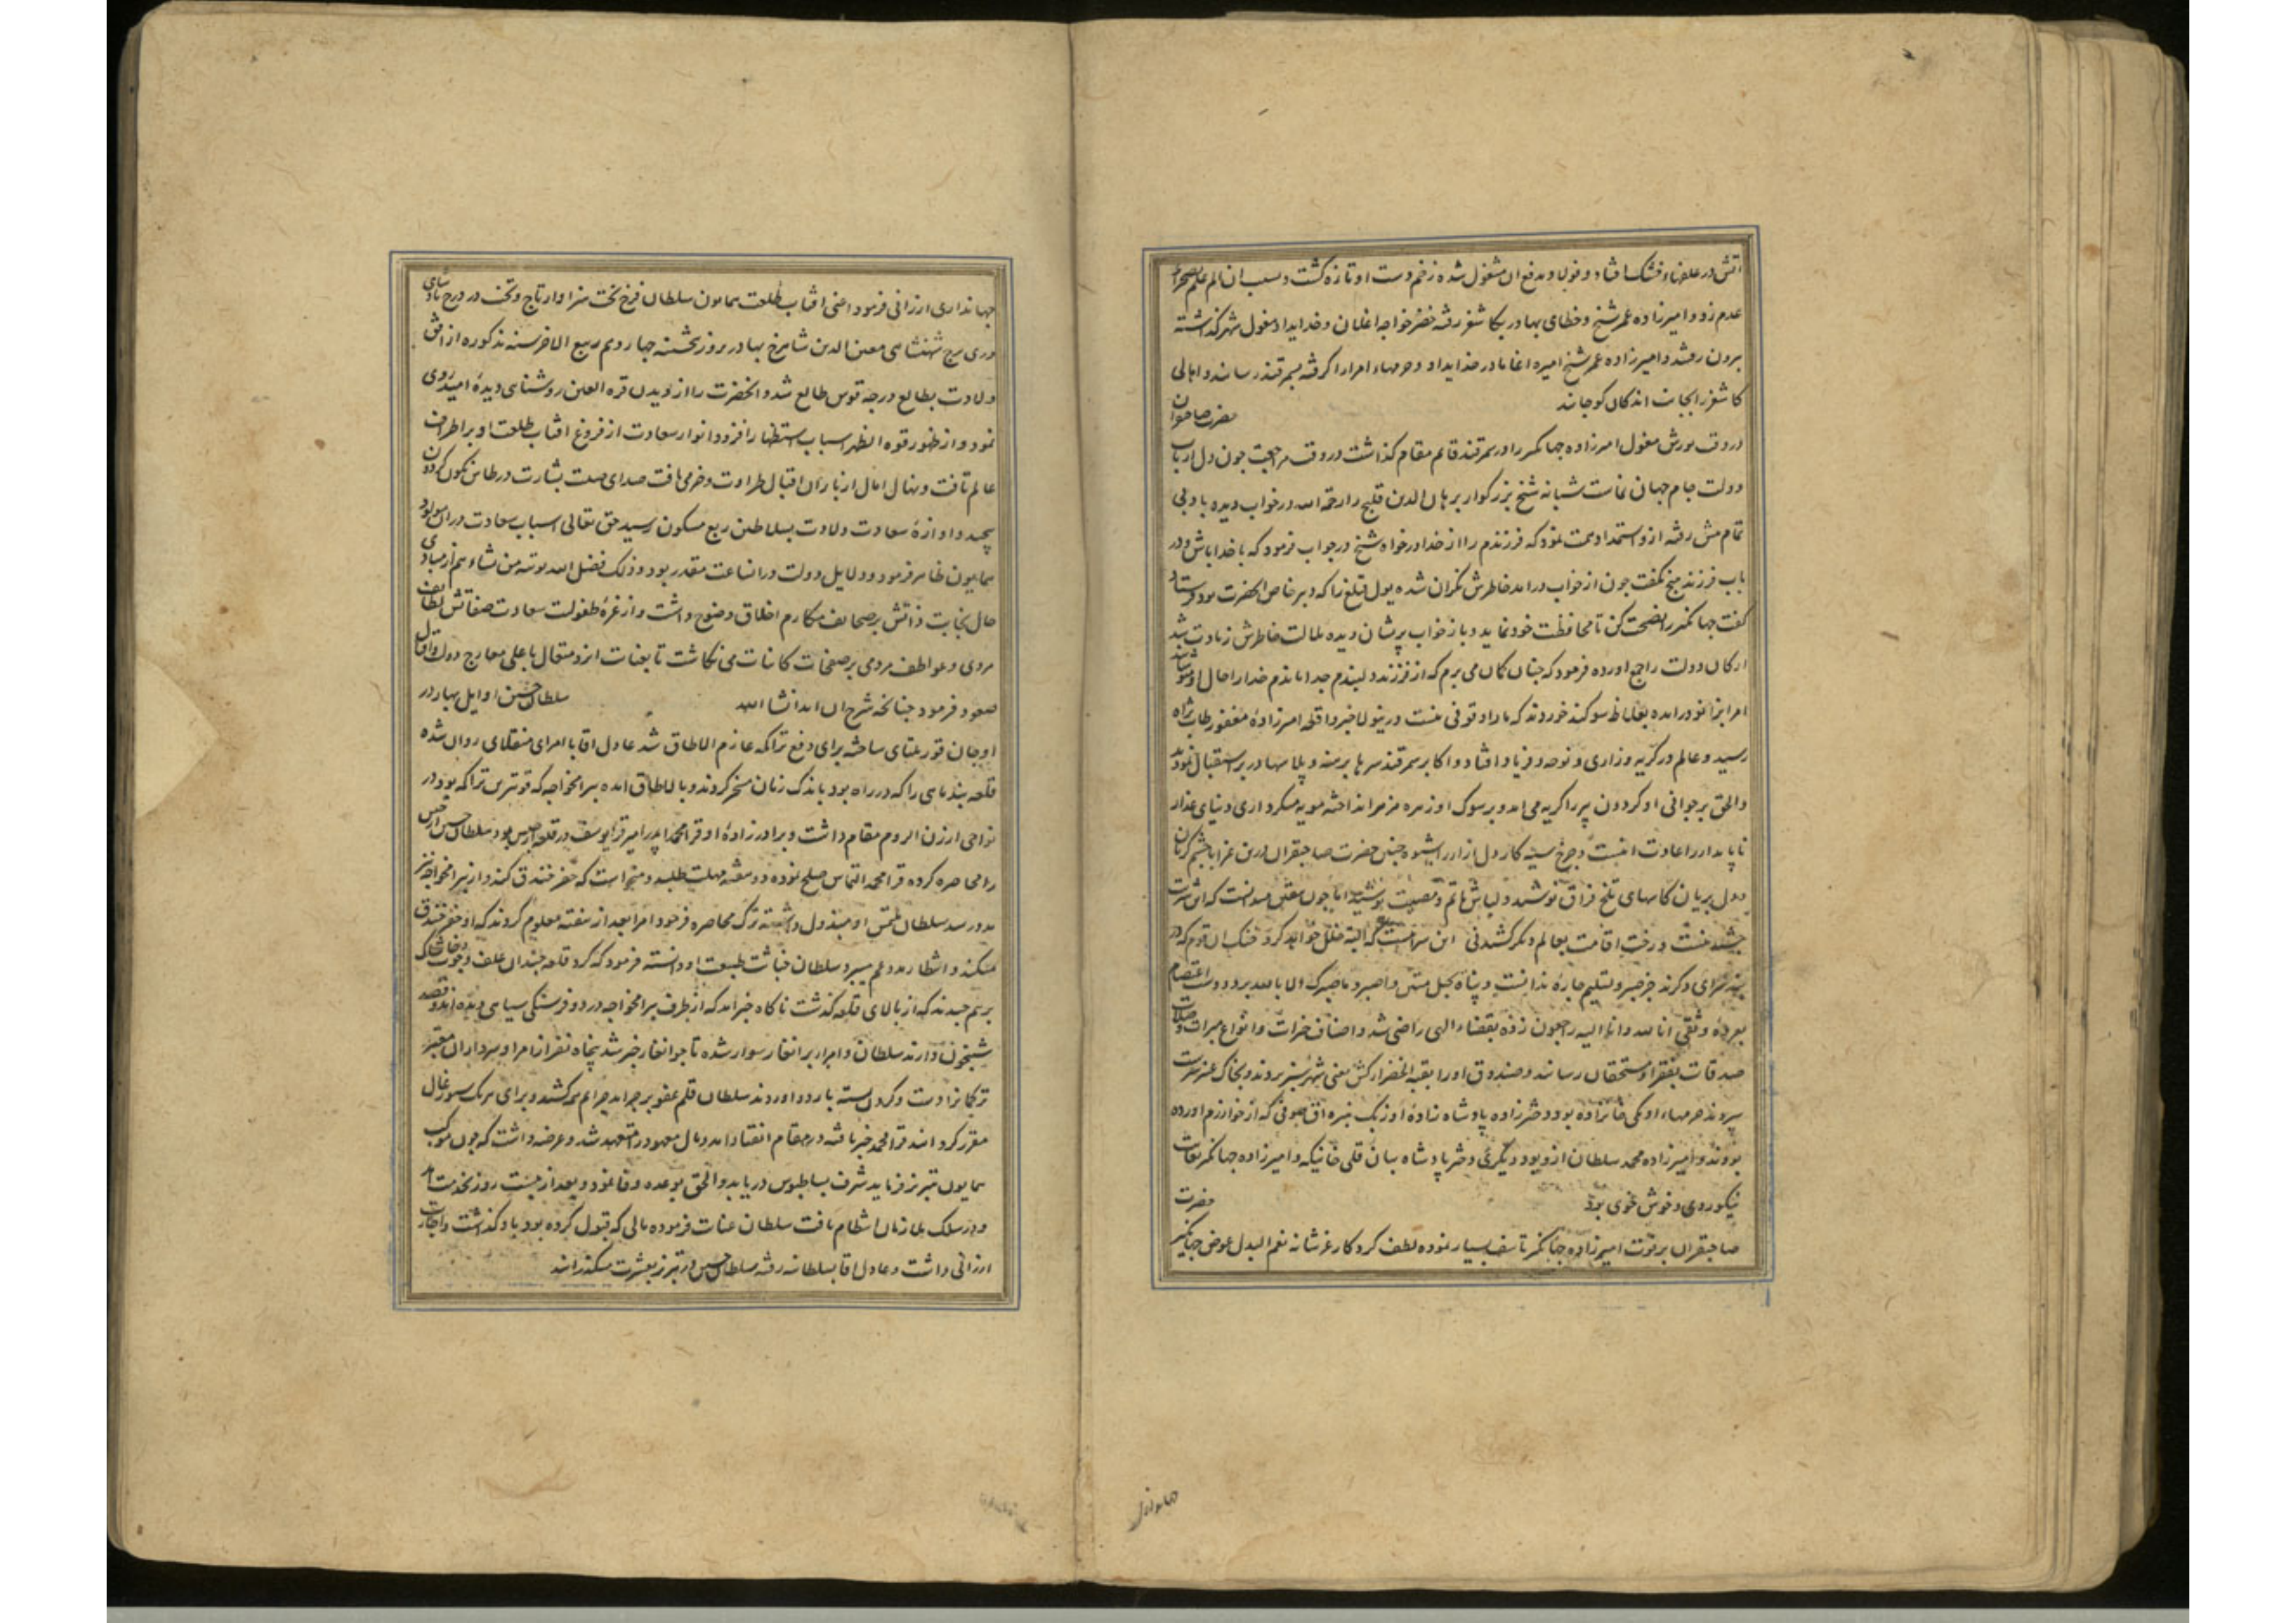 اتش در علفزاء خشک افتاد و توبلاو بدفع ان مشغول شده زخم دست او تازه گشت و بسبب ان الم علم بصحراء
عدم زد و امیرزاده عمر شیخ و خطای بهادر بکاشغر رفته خضر خواجه اغلان و خدایداد مغول شهر گذاشته
برون رفتند و امیرزاده عمر شیخ امیره اغا مادر خدایداد و حرمهاء امرا را گرفته بسمرقند رسانید و اهالی
کاشغر را بجانب اندکان کوچانید حضرت صاحبقران
در وقت یورش مغول امیرزاده جهانگیر را در سمرقند قایم مقام گذاشت در وقت مراجعت چون دل ارباب
دولت جام جهان نماست شبانه شیخ بزرگوار برهان الدین قلیج را رحمه الله در خواب دیده با ادبی
تمام پیش رفته ازو استمداد همت نمود که فرزندم را از خدا درخواه شیخ در جواب فرمود که با خدا باش و در
باب فرزند هیچ نگفت چون از خواب درامد خاطرش نگران شده یول قتلغ را که دبیر خاص انحضرت بود فرستاد
گفت جهانگیر را نصیحت کن تا محافظت خود نماید و باز خواب پریشان دیده ملالت خاطرش زیادت شد
ارکان دولت راجع اورده فرمود که چنان گمان می برم که از فرزند دلبندم جدا ماندم خدا را حال او مپوشانید
امرا بزانو درامده بغلاظ سوگند خوردند که ما را وقوفی نیست درینولا خبر واقعه امیرزاده مغفور طاب ثراه
رسید و عالم در گریه و زاری و نوحه و فریاد افتاد و اکابر سمرقند سرها برهنه و پلاسها در بر استقبال نمودند
والحق بر جوانی او گردون پیر را گریه می امد و بر سوک او زهره مزمر انداخته مویه میکرد اری دنیای غدار
ناپایدار را عادت اینست و چرخ سینه کار دل ازار را شیوه چنین حضرت صاحبقران درین عزا با چشم گریان
و دل بریان کاسهای تلخ فراق نوشید و لباس ماتم و مصیبت پوشید اما چون بیقین میدانست که این شربت
چشیدنیست و رخت اقامت بعالم دیگر کشیدنی این سراییست که البته خلل خواهد کرد خنک ان قوم که در
بند سرای دگرند جز صبر و تسلیم چاره ندانست و پناه بحبل متین واصبر وما صبرک الا بالله برد و دست اعتصام
بعروه وثقی انا لله وانا الیه راجعون زده بقضاء الهی راضی شد و اصناف خیرات و انواع مبرات و صلات
صدقات بفقرا و مستحقان رسانید و صندوق او را بقبة الخضراء کش معنی شهر سبز بردند و بخاک عنبر سرشت
سپردند حرمهاء او یکی خانزاده بود دختر زاده پادشاه زاده اوزبک نبیره اق صوفی که از خوارزم اورده
بودند و امیرزاده محمد سلطان ازو بود و دیگری دختر پادشاه بیان قلی خانیکه و امیرزاده جهانگیر بغایت
نیکو روی و خوش خوی بود حضرت
صاحبقران بر فوت امیرزاده جهانگیر تاسف بسیار نموده لطف کردکار عز شانه نعم البدل عوض جهانگیر
جهانداری ارزانی فرمود اعنی افتاب طلعت همایون سلطان فرخ بخت سزاوار تاج و تخت در درج پادشاهی
دری برج شهنشاهی معین الدین شاهرخ بهادر بروز پنجشنبه چهاردهم ربیع الاخر سنه مذکوره از افق
ولادت بطالع درجه قوس طالع شد و انحضرت را از دیدن قره العین روشنای دیده امید روی
نمود و از ظهور قوه الظهر اسباب استظهار افزود انوار سعادت از فروغ افتاب طلعت او بر اطراف
عالم تافت و نهال امال از باران اقبال طراوت و خرمی یافت صدای صیت بشارت در طاس نگون گردون
پیچید و اوازه سعادت ولادت بسلاطین ربع مسکون رسید حق تعالی اسباب سعادت دران مولود
همایون ظاهر فرمود و دلایل دولت دران ساعت مقدر بود و ذلک فضل الله یوتیه من یشاء هم از مبادی
حال نجابت ذاتش بر صحایف مکارم اخلاق وضوح داشت و از غره طفولیت سعادت صفاتش لطایف
مردی و عواطف مردمی بر صفحات کاینات می نگاشت تا بعنایت ایزد متعال باعلی معارج دولت و اقبال
صعود فرمود چنانکه شرح ان اید انشا الله سلطان حسین اوایل بهار در
اوجان قوریلتای ساخته برای دفع تراکمه عازم الاطاق شد عادل اقا با امرای منقلای روان شده
قلعه بند ماهی را که در راه بود باندک زمان مسخر کردند و بالاطاق امده بیرامخواجه که قوترین تراکمه بود در
نواحی ارزن الروم مقام داشت و برادر زاده او قرا محمد پدر امیر قرا یوسف در قلعه ارجیس بود سلطان حسین ارجیس
را محاصره کرده قرا محمد التماس صلح نموده دو هفته مهلت طلبید و میخواست که حفر خندق کند و از بیرامخواجه نیز
مدد رسد سلطان ملتمس او مبذول داشته ترک محاصره فرمود امرا بعد از هفته معلوم کردند که او حفر خندق
میکند و انتظار مدد عم میبرد سلطان خباثت طبیعت او دانسته فرمود که گرد قلعه چندان علف و چوب و خاشاک
برهم چیدند که از بالای قلعه گذشت ناگاه خبر امد که از طرف بیرامخواجه در دو فرسنگی سیاهی دیده اند و قصد
شبیخون دارند سلطان و امراء برانغار سوار شده تا جوانغار خبر شد پنجاه نفر از امرا و سرداران معتبر
ترکمانرا دست و گردن بسته باردو اوردند سلطان قلم عفو بر جراید جرایم همه کشید و برای هر یک سیورغال
مقرر کردانید قرا محمد خبر یافته در مقام انقیاد امد و مال معهود را متعهد شد و عرضه داشت که چون موکب
همایون بتبریز فرماید شرف بساطبوس دریابد والحق بوعده وفا نمود و بعد از بیست روز بخدمت امد
و در سلک ملازمان انتظام یافت سلطان عنایت فرموده مالی که قبول کرده بود باو گذاشت و اجازت
ارزانی داشت و عادل اقا بسلطانیه رفته سلطان حسین در تبریز بعشرت میگذرانید